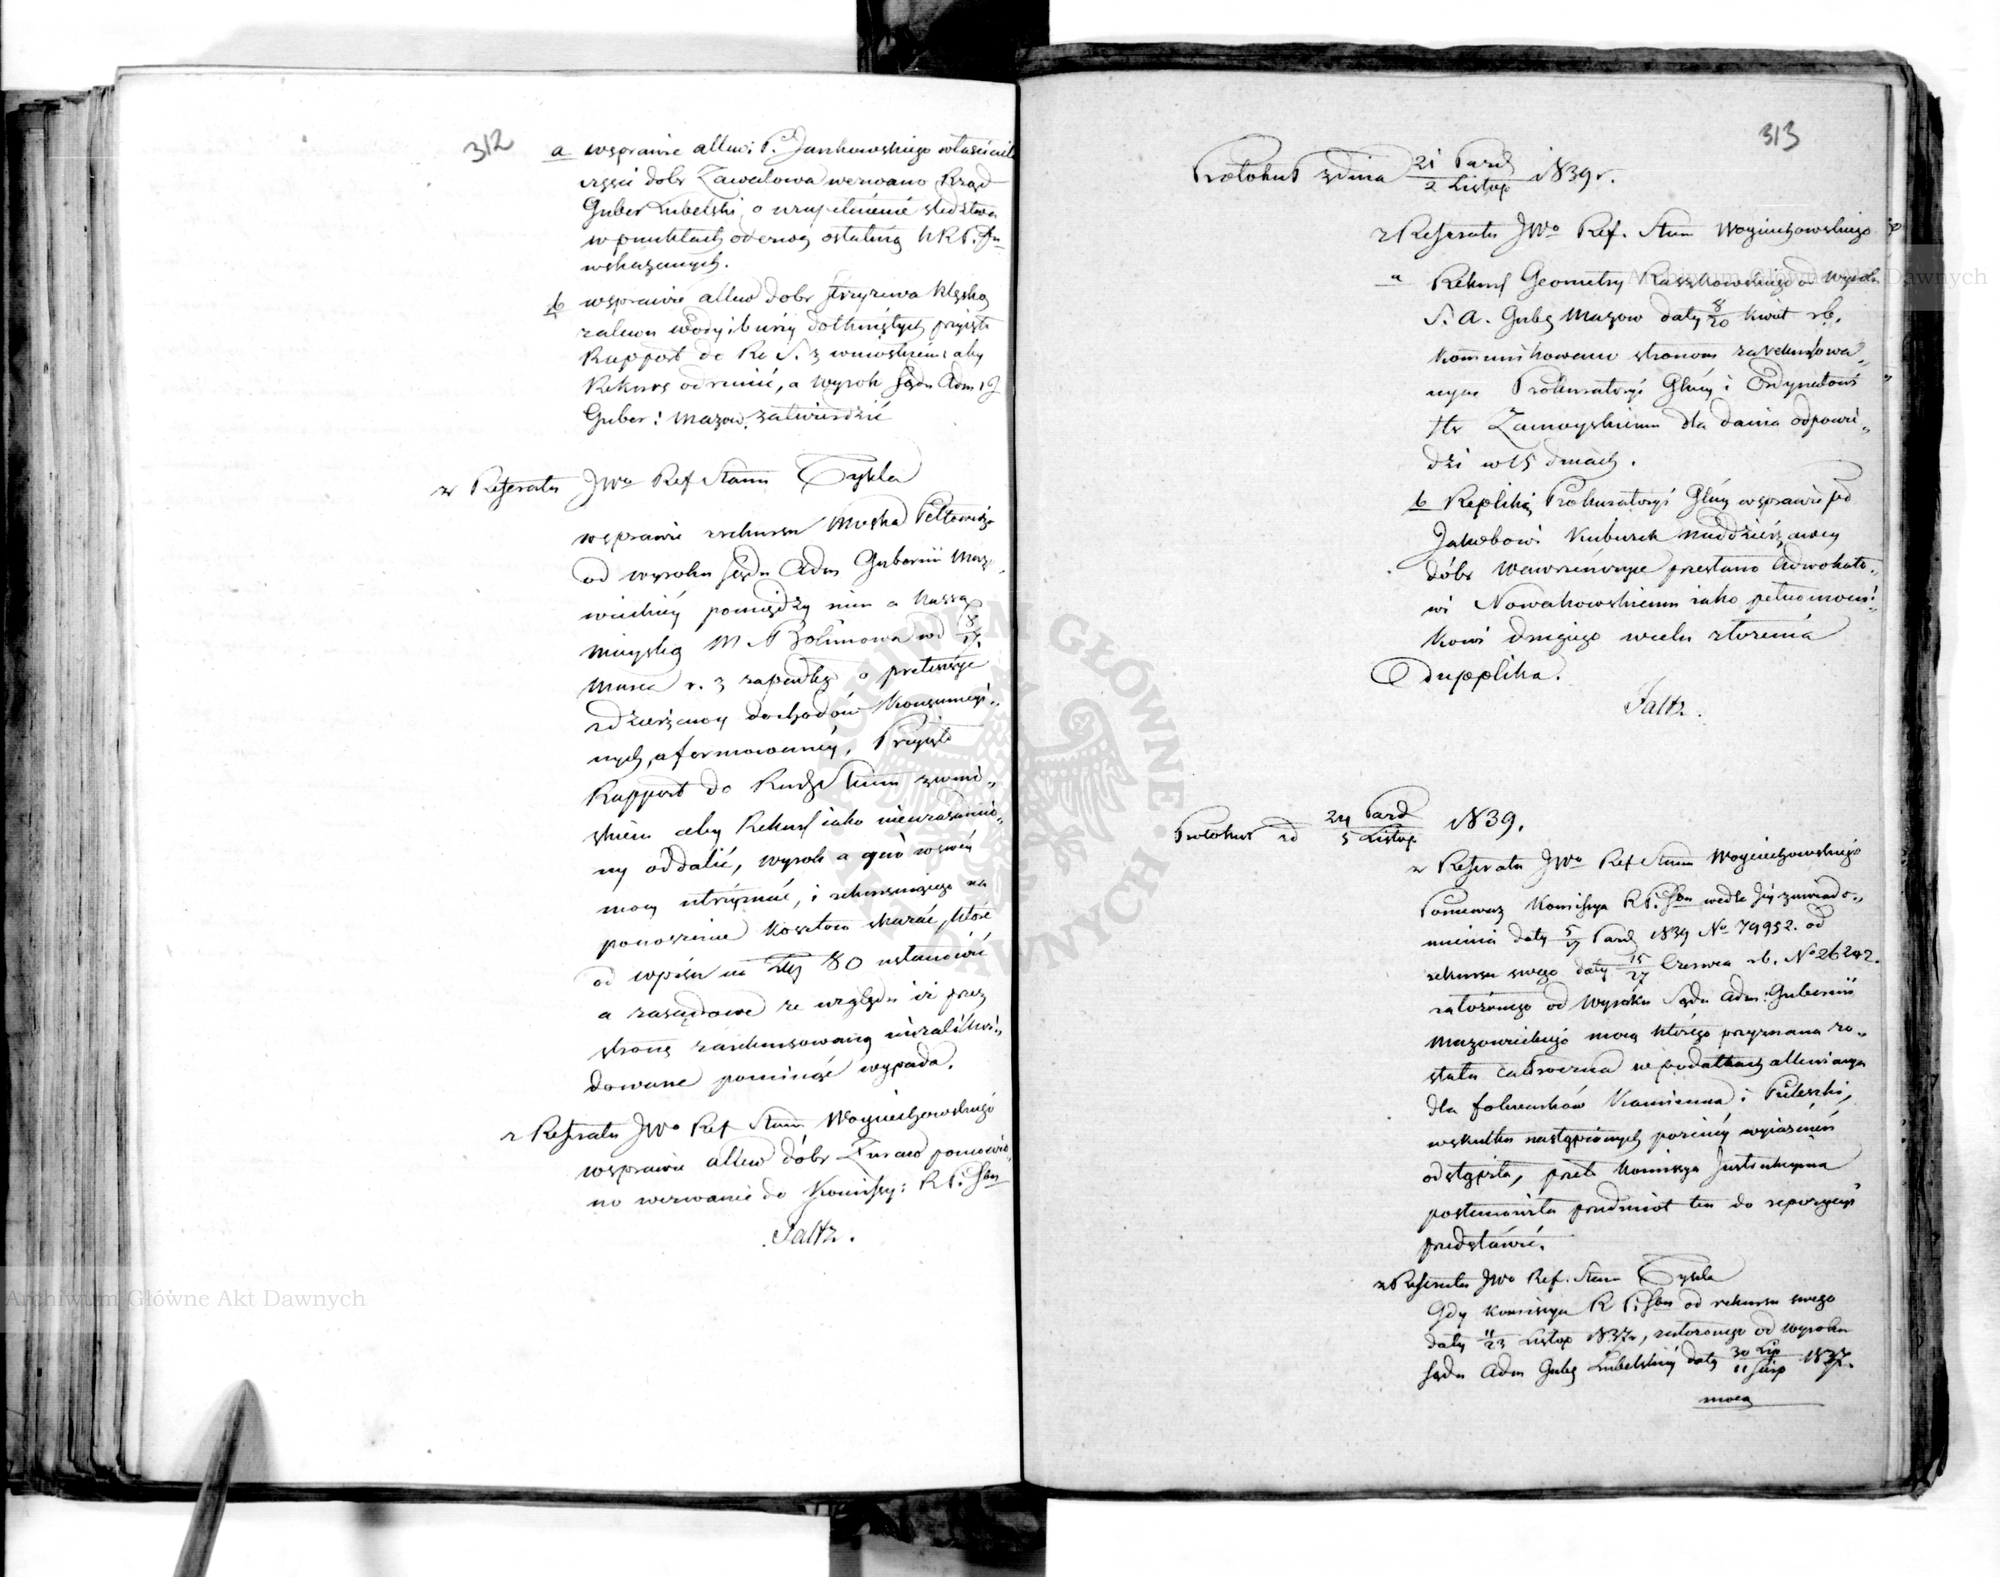 312
a wsprawie allewi P. Jankowskiego właściciela
części dobr Zawalowa wezwano Rząd
Guber Lubelski, o uzupełnienie śledztwa
w punktach odezwą ostatnią KRP. Sk
wskazanych.
b wsprawie allew dobr Stryżewa klęską
zalewu wody i burzy dotkniętych przyięto
Rapport do Ra S. z wnioskiem: aby
Rekurs odrzucić, a wyrok Sądu Adm:
Guber: Mazow. zatwierdzić
z Referatu JWo Ref Stanu Tykla
wsprawie rekursu Moszka
od wyroku Sądu Adm Gubernii Mazo
wieckiey pomiędzy nim a Kassą
mieyską M Bolimowa od
Marca r. z zapadłego o pretensye
z dzierżawy dochodów konsumcyi„
nych, uformowaney, Przyięto
Rapport do Rady Stanu z wnio„
skiem aby Rekurs iako nieuzasadnio„
ny oddalić, wyrok a quo w swey
mocy utrzymać, i rekursuiącego na
ponoszenie kosztów skazać, które
od wpisu na złp 80 ustanowić
a zasądowe ze względu iż przez
stronę zarekursowaną niezalikwi„
dowane pominąć wypada.
z Referatu JWo Ref Stanu Woyciechowskiego
wsprawie allew dóbr Żuraw ponowio
no wezwanie do Kommissyi: RP. Sk
Saltz.
313
Protokuł z dnia 21 Pazd / 2 Listop 1839 r.
z Referatu JWo Ref. Stanu Woyciechowskiego
a Rekurs Geometry Raszkowskiego od wyroku
S. A. Gubę Mazow daty 8/20 Kwiet rb.
kommunikowano stronom zarekursowa„
nym Prokuratoryi Głney i Ordynatowi
Hr Zamoyskiemu dla dania odpowie„
dzi w 15 dniach.
b Replikę Prokuratoryi Głney wsprawie
Jakobowi Kubiszek naddzierżawcy
dóbr przesłano Adwokato„
wi Nowakowskiemu iako pełnomocni„
kowi drugiego w celu złożenia
Dupplika.
Saltz.
Protokuł zd 24 Pazd / 5 Listop 1839.
z Referatu JWo Ref Stanu Woyciechowskiego
Ponieważ Kommissya RP. Sk wedle Jey zawiado„
mienia daty 5/17 Pazd 1839 No 79952. od
rekursu swego daty 15/27 Czerwca rb. No 26242.
założonego od Wyroku Sądu Adm: Gubernii
Mazowieckiey mocą którego przyznana zo„
stała całkowita w podatkach allewiacya
dla folwarków Kamienna i
wskutku nastąpionych poźniey wyiaśnień
odstąpiła, przeto Kommissya Instrukcyina
postanowiła przedmiot ten do repozycyi
przedstawić.
z Referatu JWo Ref. Stanu Tykla
Gdy Kommissya RP. Sk od rekursu swego
daty 11/23 Listop 1837 r., założonego od wyroku
Sądu Adm Gubę Lubelskiey daty 30 Lip / 11 Sierp 1837.
mocą